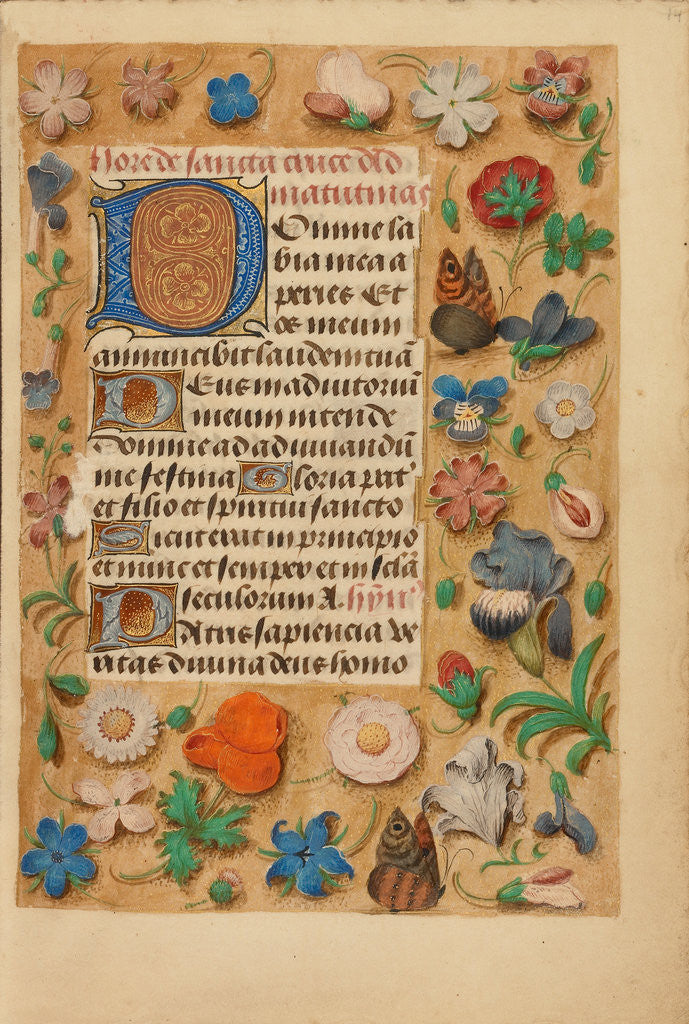 Hore de sancta cruce Ad
matutinas
Domine la
bia mea a
peries Et
os meum
annunciabit laudem tuā
Deus in adiutoriū
meum intende
Domine ad adiuuandū
me festina Gloria pat̄
et filio et spiritui sancto
Sicut erat in principio
et nunc et semper et in sc̄la
seculorum A. hȳn⁹
Patris sapiencia ve
ritas diuina deus homo